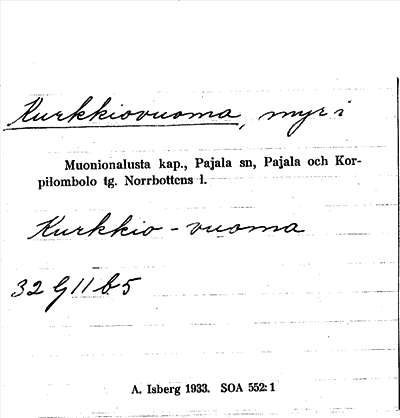 Kurkkiovuoma, myr i
Muonionalusta kap., Pajala sn, Pajala och Kor-
pilombolo tg. Norrbottens l.
Kurkkio-vuoma
32 G 11 b 5
A. Isberg 1933. SOA 552:1